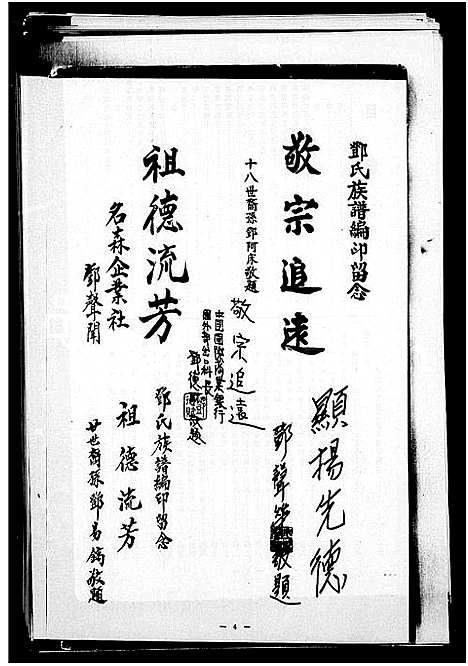 鄧氏族譜編印留念
敬宗追遠
十八世裔孫鄧阿床敬題
顯揚先德
鄧聲 敬題
敬宗追遠
中國國際商業銀行
國外部出口科長
鄧德 敬題
祖德流芳
名森企業社
鄧聲開
鄧氏族譜編印留念
祖德流芳
廿世裔孫鄧易鑄敬題
— 4 —